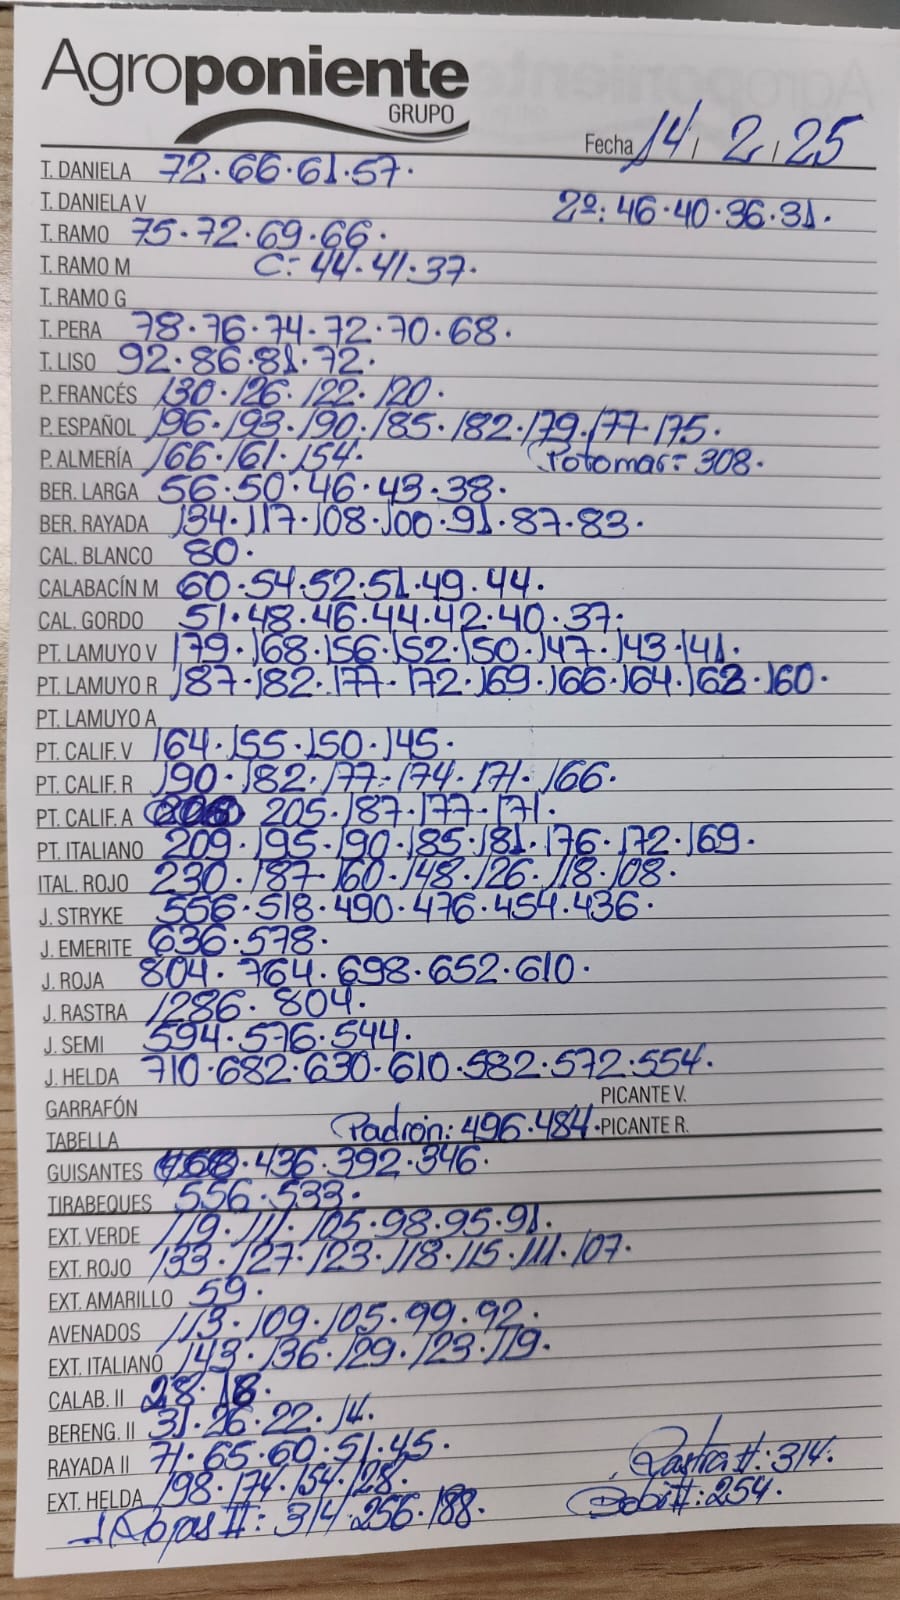 Agroponiente
GRUPO
Fecha 14, 2, 25
T. DANIELA 72·66·61·57·
T. DANIELA V 2º: 46·40·36·31.
T. RAMO 75·72·69·66·
T. RAMO M C: 44·41·37·
T. RAMO G
T. PERA 78·76·74·72·70·68·
T. LISO 92·86·81·72·
P. FRANCÉS 130·126·122·120·
P. ESPAÑOL 196·193·190·185·182·179·177·175·
P. ALMERÍA 166·161·154· Potomac: 308·
BER. LARGA 56·50·46·43·38·
BER. RAYADA 134·117·108·100·91·87·83·
CAL. BLANCO 80·
CALABACÍN M 60·54·52·51·49·44·
CAL. GORDO 51·48·46·44·42·40·37·
PT. LAMUYO V 179·168·156·152·150·147·143·141·
PT. LAMUYO R 187·182·177·172·169·166·164·162·160·
PT. LAMUYO A
PT. CALIF. V 164·155·150·145·
PT. CALIF. R 190·182·177·174·171·166·
PT. CALIF. A 205·187·177·171·
PT. ITALIANO 209·195·190·185·181·176·172·169·
ITAL. ROJO 230·187·160·148·126·118·108·
J. STRYKE 556·518·490·476·454·436·
J. EMERITE 636·578·
J. ROJA 804·764·698·652·610·
J. RASTRA 1286·804·
J. SEMI 594·576·544·
J. HELDA 710·682·630·610·582·572·554·
GARRAFÓN PICANTE V.
TABELLA Padrón: 496·484· PICANTE R.
GUISANTES ·436·392·346·
TIRABEQUES 556·533·
EXT. VERDE 119·111·105·98·95·91·
EXT. ROJO 133·127·123·118·115·111·107·
EXT. AMARILLO 59·
AVENADOS 113·109·105·99·92·
EXT. ITALIANO 143·136·129·123·119·
CALAB. II 28·18·
BERENG. II 31·26·22·14·
RAYADA II 71·65·60·51·45· Rastra II: 314·
EXT. HELDA 198·174·154·128· Bobi II: 254·
J Rojas II: 314·256·188·